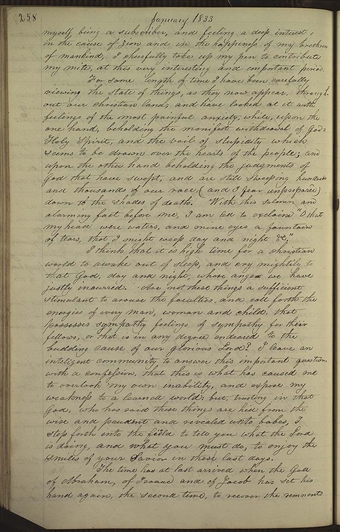 258
January 1833
myself being a subscriber, and feeling a deep interest,
in the cause of Zion and in the happiness of my brethren
of mankind, I cheerfully take up my pen to contribute
my mite, at this very interesting and important period.
For some length of time I have been carefully
viewing the state of things, as they now appear, through
out our christian land; and have looked at it with
feelings of the most painful anxiety, while, upon the
one hand, beholding the manifest withdrawal of God's
Holy Spirit, and the vail of stupidity which
seems to be drawn over the hearts of the people; and
upon the other hand beholding the judgments of
God that have swept, and are still sweeping hundreds
and thousands of our race (and I fear unprepared)
down to the shades of death. With this solemn and
alarming fact before me, I am led to exclaim "O that
my head were waters, and mine eyes a fountain
of tears, that I might weep day and night &c,"
I think that it is high time for a christian
world to awake out of sleep, and cry mightily to
that God, day and night, whose anger we have
justly incurred. Are not these things a sufficient
stimulant to arouse the faculties, and call forth the
energies of every man, woman and child, that
possesses sympathy feelings of sympathy for their
fellows, or that is in any degree endeared to the
budding cause of our glorious Lord? I leave an
inteligent community to answer this important question
with a confession, that this is what has caused me
to overlook my own inability, and expose my
weakness to a learned world: but trusting in that
God, who has said these things are hid from the
wise and prudent and revealed unto babes, I
step forth into the field to tell you what the Lord
is doing, and what you must do, to enjoy the
smiles of your Savior in these last days.
The time has at last arrived when the God
of Abraham, of Isaac and of Jacob has set his
hand again, the second time, to recover the remnants